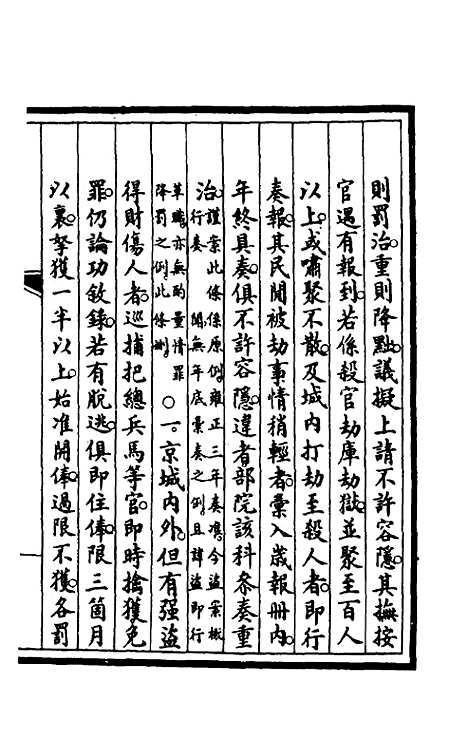 則罰治重則降黜議擬上請不許容隱其撫按
官遇有報到若係殺官劫庫劫獄並聚至百人
以上或嘯聚不散及城内打劫至殺人者即行
奏報其民間被劫事情稍輕者彙入歲報册内
年終具奏俱不許容隱違者部院該科叅奏重
治謹案此條係原例雍正三年奏准今盜案概
行奏聞無年底彙奏之例且諱盜即行
革職亦無酌量情罪
降罰之例此條刪○一京城内外但有强盜
得財傷人者巡捕把總兵馬等官即時擒獲免
罪仍論功敘錄若有脫逃俱即住俸限三箇月
以裏拏獲一半以上始准開俸過限不獲各罰